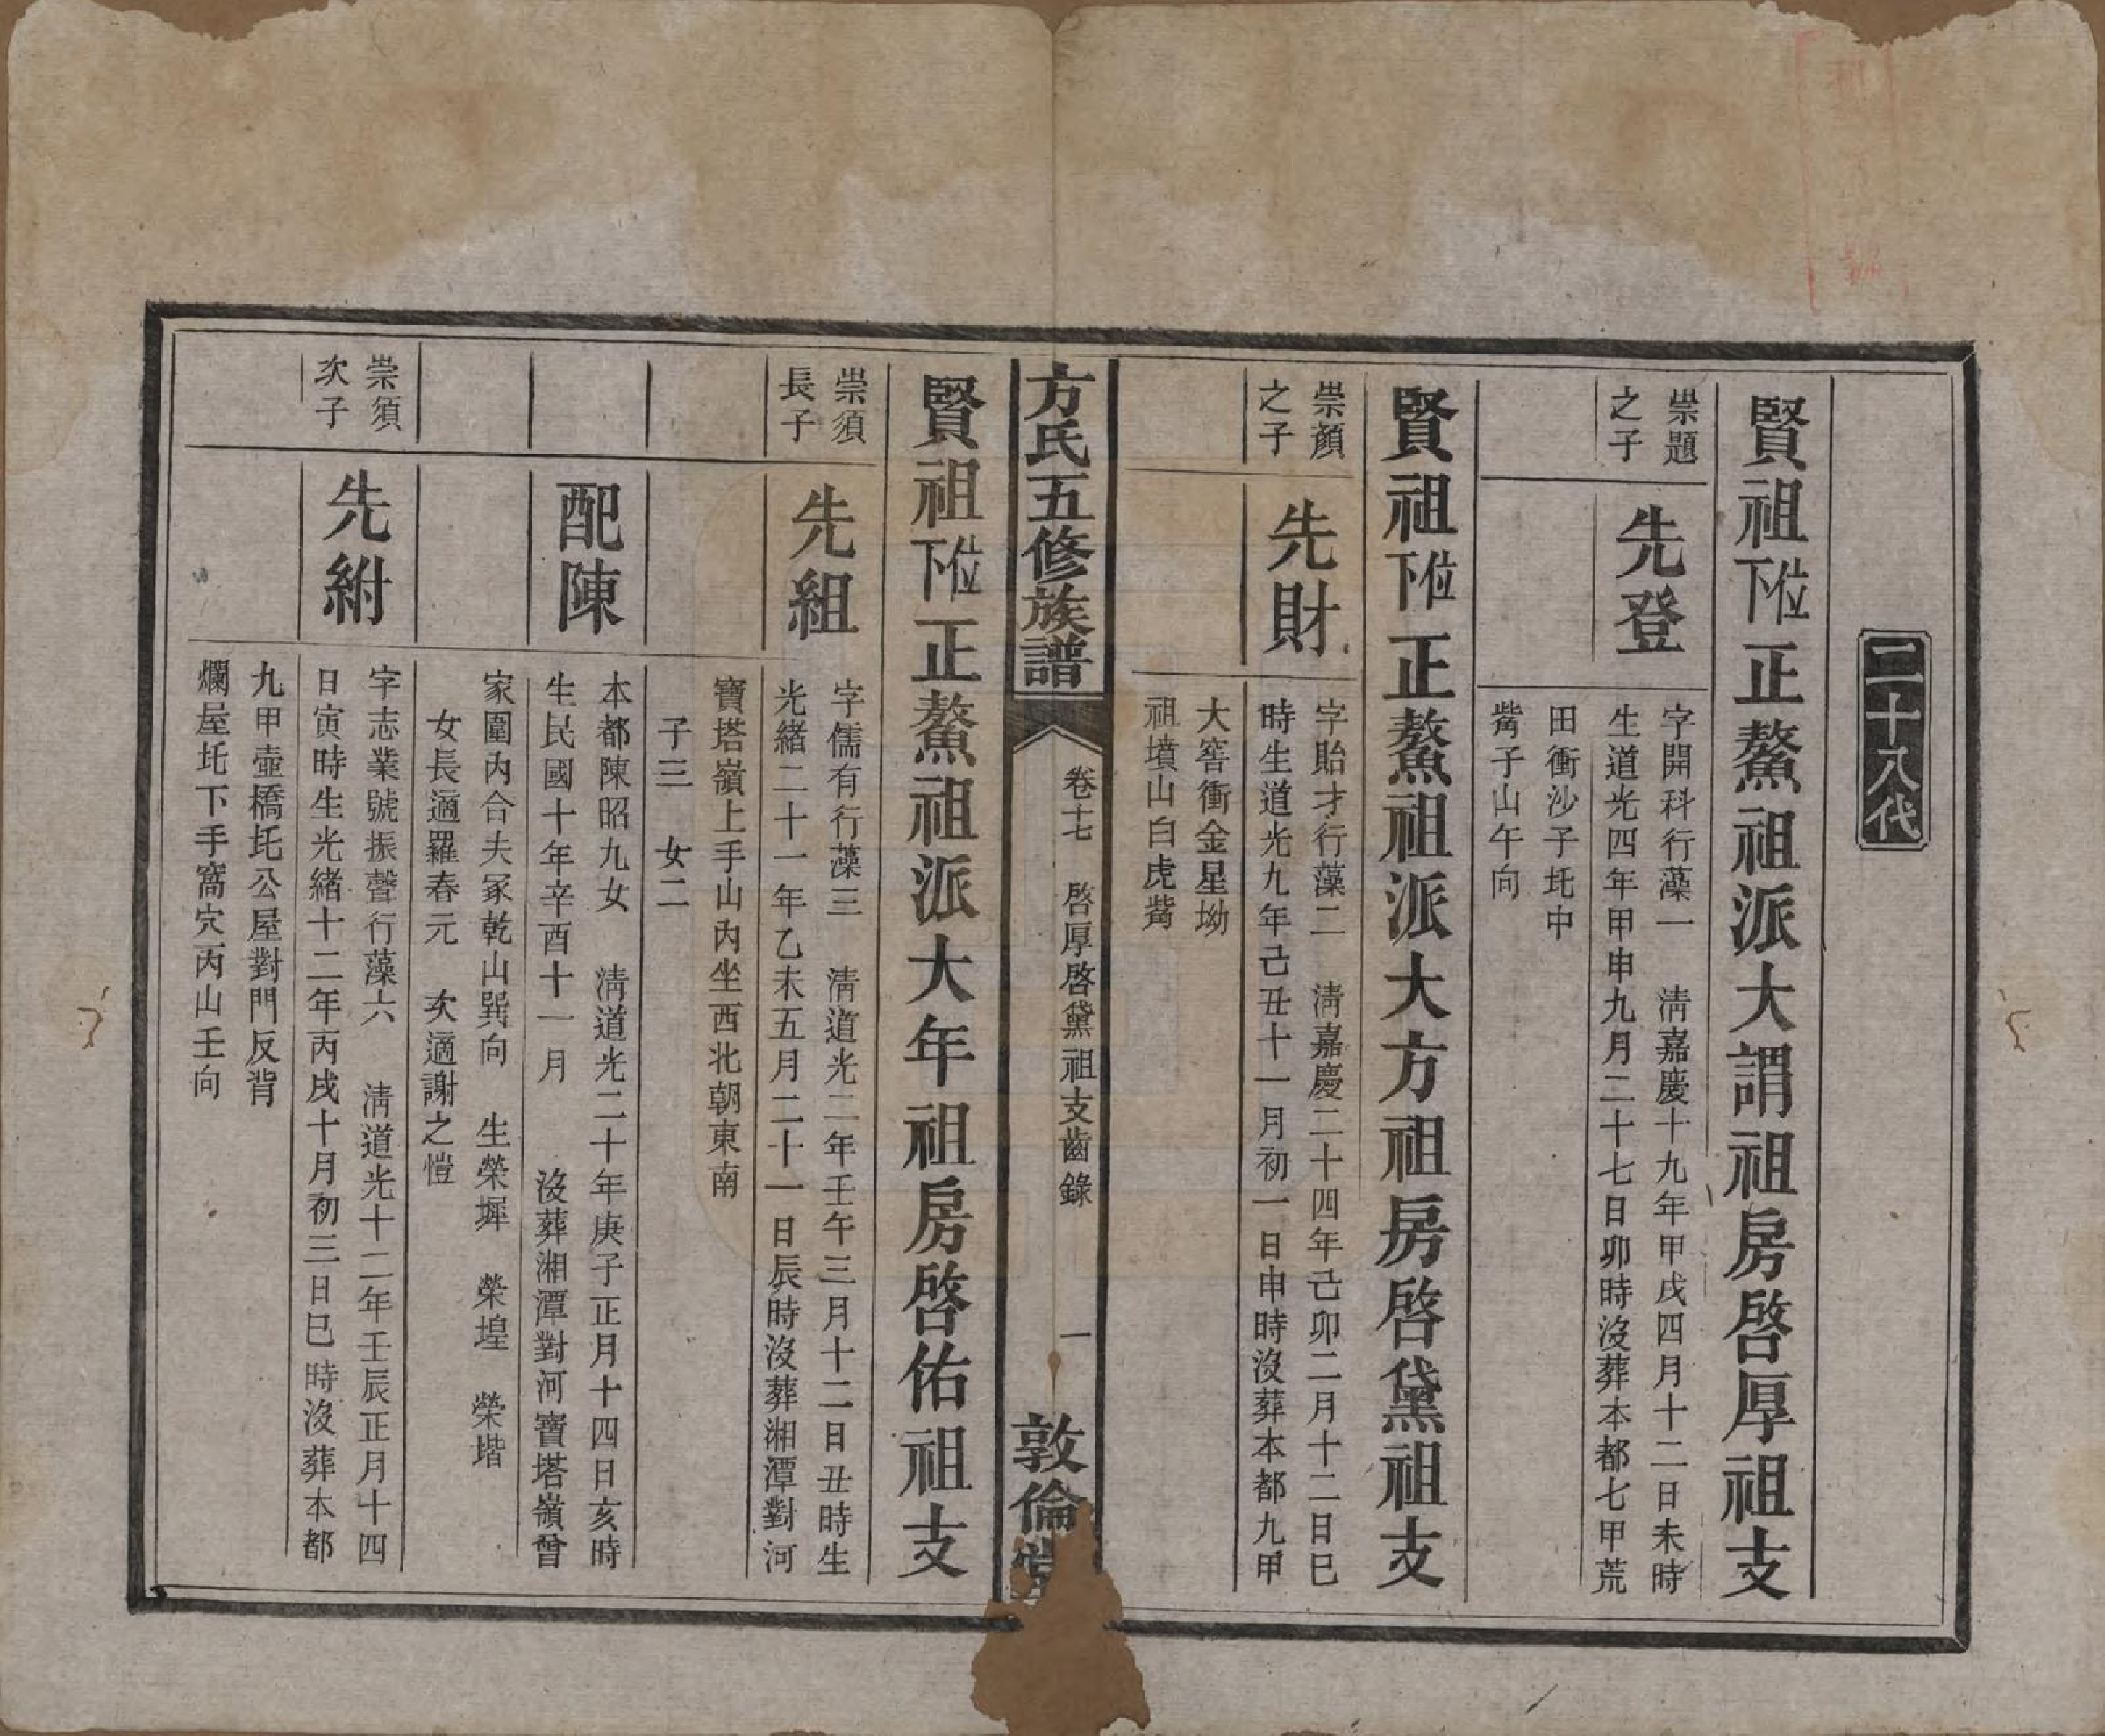 二十八代
賢祖位下正鰲祖派大謂祖房啓厚祖支
崇題
之子
先登
字開科行藻一　淸嘉慶十九年甲戌四月十二日未時
生道光四年甲申九月二十七日卯時沒葬本都七甲荒
田衝沙子圫中
觜子山午向
賢祖位下正鰲祖派大方祖房啓黛祖支
崇顏
之子
先財
字貽才行藻二　淸嘉慶二十四年己卯二月十二日巳
時生道光九年己丑十一月初一日申時沒葬本都九甲
大窖衝金星坳
祖墳山白虎觜
方氏五修族譜
卷十七　啓厚啓黛祖支齒錄　一
敦倫堂
賢祖位下正鰲祖派大年祖房啓佑祖支
崇須
長子
先組
字儒有行藻三　淸道光二年壬午三月十二日丑時生
光緒二十一年乙未五月二十一日辰時沒葬湘潭對河
寶塔嶺上手山內坐西北朝東南
子三　女二
配陳
本都陳昭九女　淸道光二十年庚子正月十四日亥時
生民國十年辛酉十一月　沒葬湘潭對河寶塔嶺曾
家圍內合夫冢乾山巽向　生榮墀　榮堭　榮堦
女長適羅春元　次適謝之愷
崇須
次子
先紨
字志業號振聲行藻六　淸道光十二年壬辰正月十四
日寅時生光緒十二年丙戌十月初三日巳時沒葬本都
九甲壺橋圫公屋對門反背
爛屋圫下手窩穴丙山壬向